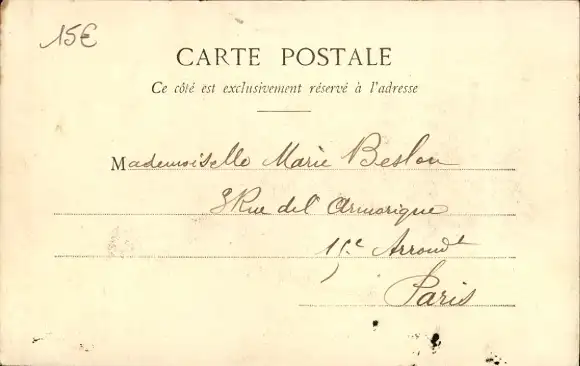 15€
CARTE POSTALE
Ce côté est exclusivement réservé à l'adresse
Mademoiselle Marie Beslon
8 Rue de l'Armorique
15e Arrondt
Paris